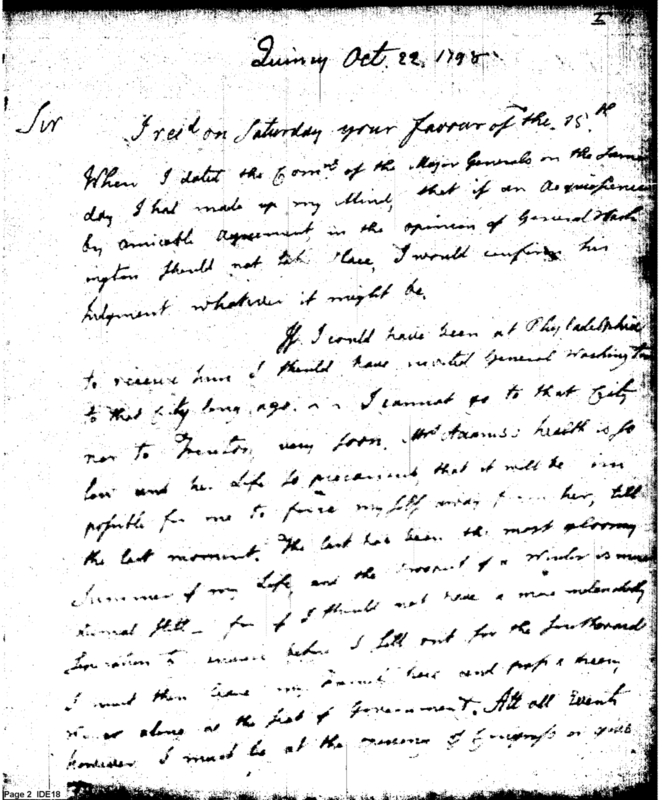 I
Quincy Oct. 22. 1798
Sir I recd on Saturday your favour of the 15.th
When I dated the Comns of the Major Generals on the same
day I had made up my Mind, that if an Acquiescence
by amicable Agreement, in the opinion of General Wash
ington should not take Place, I would confirm his
Judgment whatever it might be.
If I could have been at Philadelphia
to receive him I should have invited General Washington
to that City long ago. I cannot go to that City
nor to Trenton, very soon. Mrs Adams's health is so
low and her Life so precarious, that it will be im
possible for me to force myself away from her, till
the last moment. The last has been the most gloomy
Summer of my Life, and the Prospect of a Winter is more
dismal still — for if I should not have a more melancholy
Separation to endure before I sett out for the Southward
I must then leave my Family here and pass a dreary
Winter alone at the Seat of Government. Att all Events
however I must be at the meeting of Congress or
Page 2 IDE18